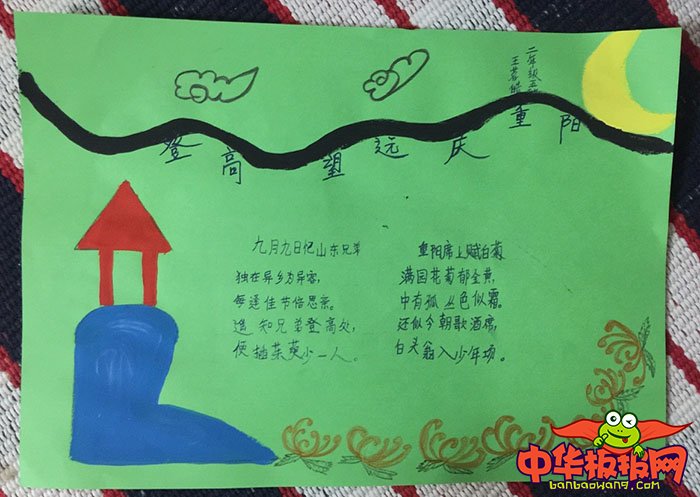 二年级五
登高望远庆重阳
九月九日忆山东兄弟
独在异乡为异客,
每逢佳节倍思亲。
遥知兄弟登高处,
便插茱萸少一人。
重阳席上赋白菊
满园花菊郁金黄,
中有孤丛色似霜。
还似今朝歌酒席,
白头翁入少年场。
中华板报网
banbaowang.com